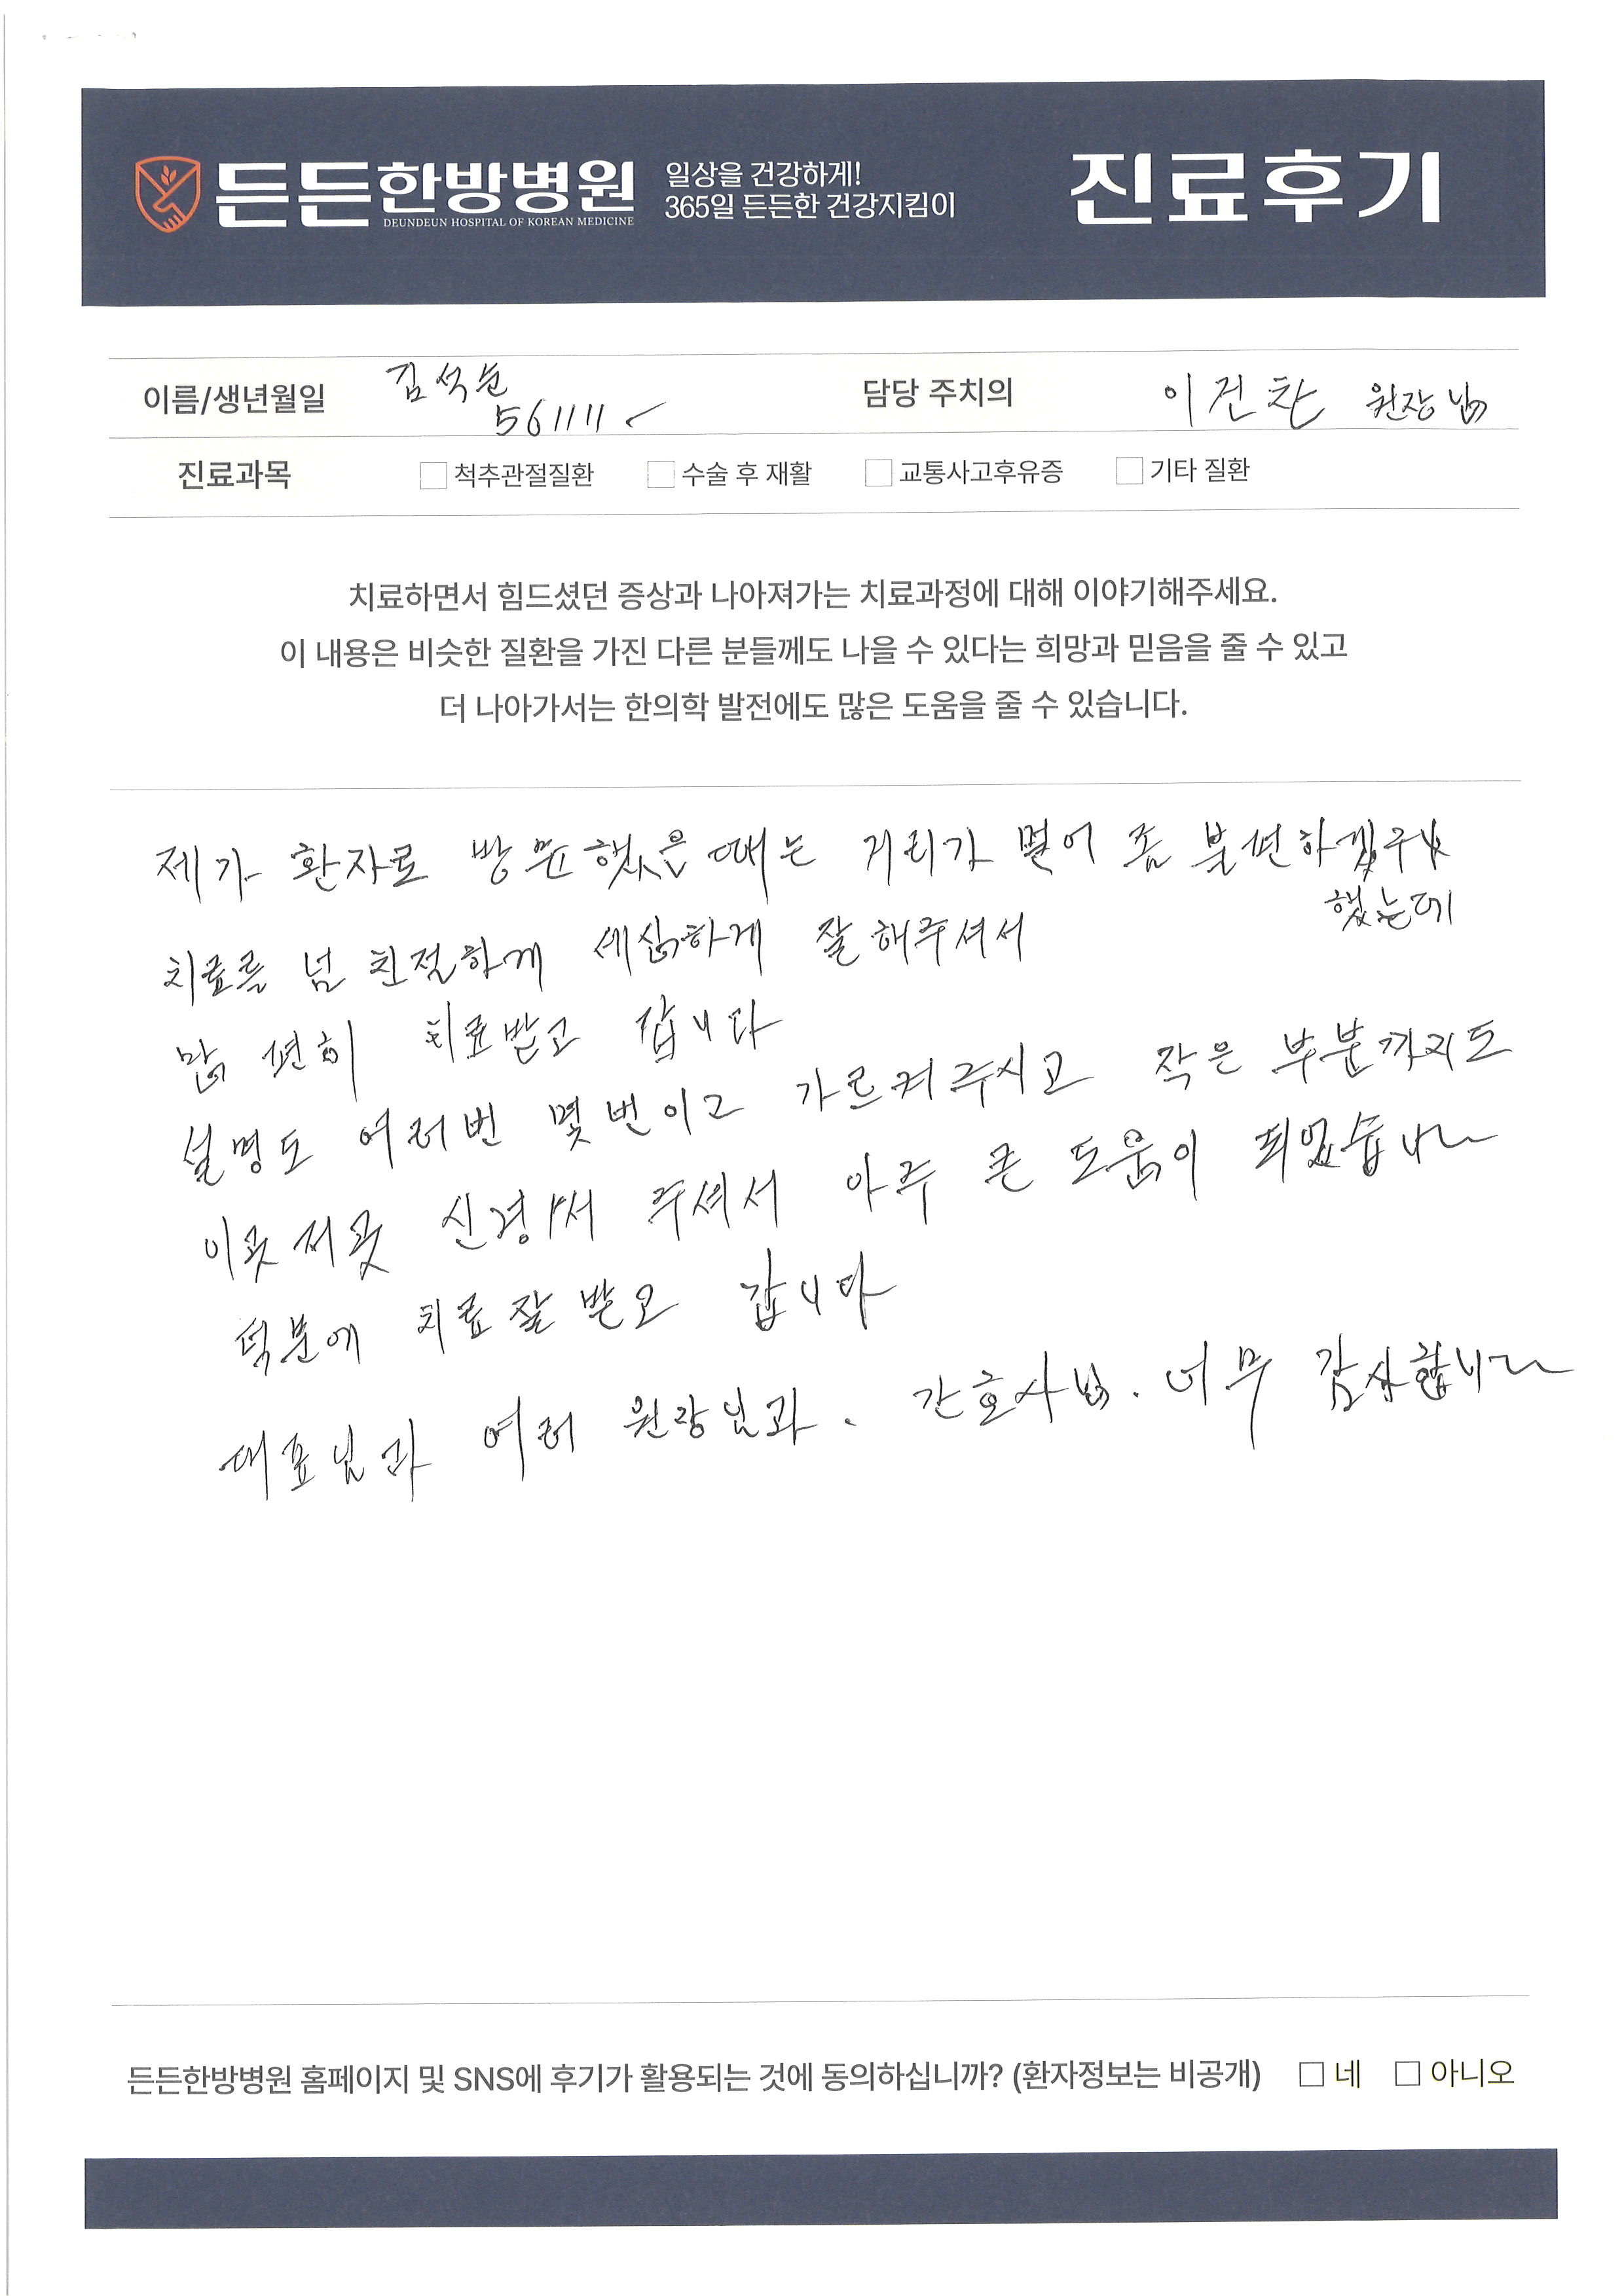 든든한방병원
DEUNDEUN HOSPITAL OF KOREAN MEDICINE
일상을 건강하게!
365일 든든한 건강지킴이
진료후기
이름/생년월일 김석순 561111
담당 주치의 이건찬 원장님
진료과목 척추관절질환 수술 후 재활 교통사고후유증 기타 질환
치료하면서 힘드셨던 증상과 나아져가는 치료과정에 대해 이야기해주세요.
이 내용은 비슷한 질환을 가진 다른 분들께도 나을 수 있다는 희망과 믿음을 줄 수 있고
더 나아가서는 한의학 발전에도 많은 도움을 줄 수 있습니다.
제가 환자로 방문했을 때는 거리가 멀어 좀 불편하겠구나
했는데
치료를 넘 친절하게 세심하게 잘해주셔서
맘 편히 치료받고 갑니다
설명도 여러번 몇번이고 가르켜주시고 작은 부분까지도
이곳저곳 신경써 주셔서 아주 큰 도움이 되었습니다
덕분에 치료 잘 받고 갑니다
대표님과 여러 원장님과. 간호사님. 너무 감사합니다
든든한방병원 홈페이지 및 SNS에 후기가 활용되는 것에 동의하십니까? (환자정보는 비공개) 네 아니오